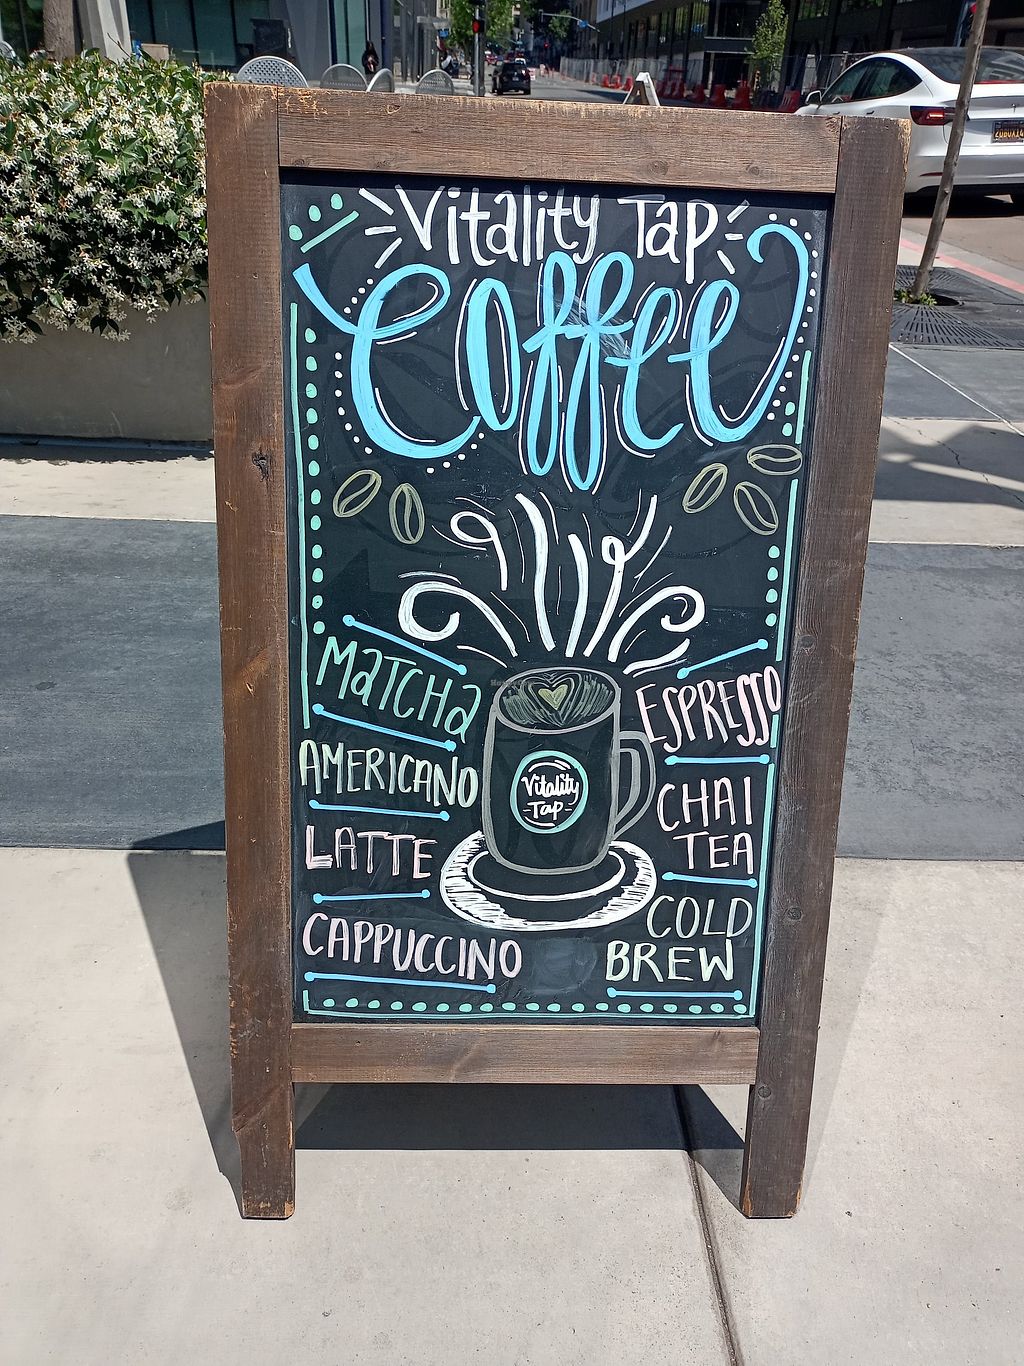 Vitality Tap
Coffee
MATCHA
AMERICANO
LATTE
CAPPUCCINO
Vitality
-Tap-
ESPRESSO
CHAI
TEA
COLD
BREW